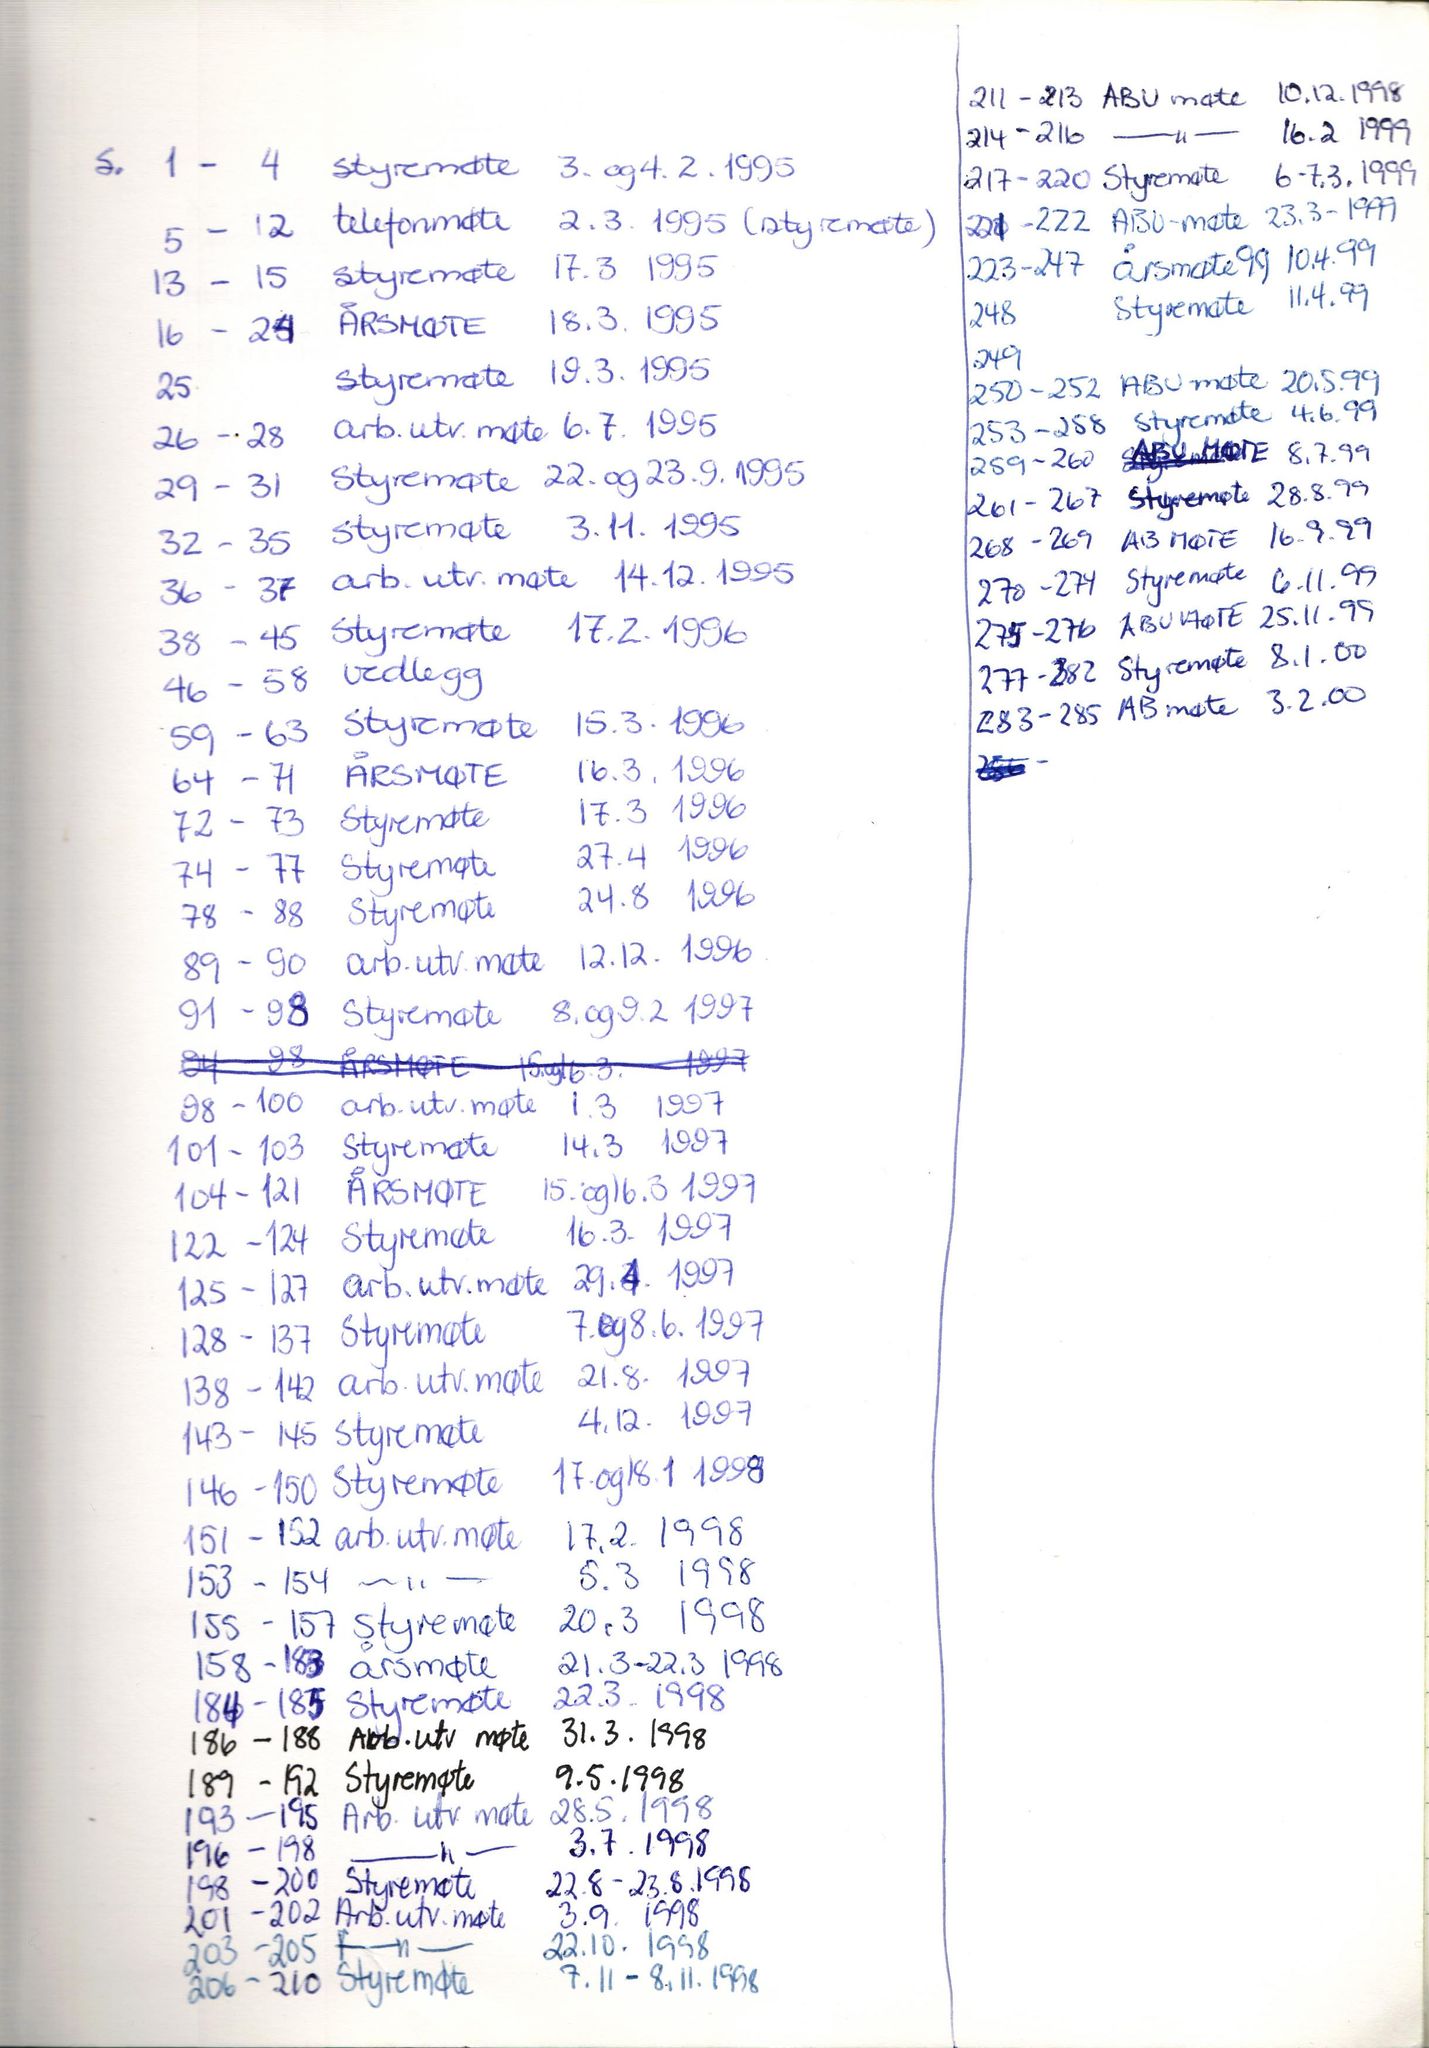 s. 1 - 4 styremøte 3. og 4. 2. 1995
5 - 12 telefonmøte 2.3. 1995 (styremøte)
13 - 15 styremøte 17.3 1995
16 - 24 ÅRSMØTE 18.3. 1995
25 styremøte 19.3. 1995
26 - 28 arb. utv. møte 6.7. 1995
29 - 31 Styremøte 22. og 23.9. 1995
32 - 35 Styremøte 3.11. 1995
36 - 37 arb. utv. møte 14.12. 1995
38 - 45 Styremøte 17.2. 1996
46 - 58 vedlegg
59 - 63 Styremøte 15.3. 1996
64 - 71 ÅRSMØTE 16.3. 1996
72 - 73 Styremøte 17.3 1996
74 - 77 Styremøte 27.4 1996
78 - 88 Styremøte 24.8 1996
89 - 90 arb. utv. møte 12.12. 1996
91 - 98 Styremøte 8. og 9.2 1997
94 - 98 ÅRSMØTE 15. og 16.3. 1997
98 - 100 arb. utv. møte 1.3 1997
101 - 103 Styremøte 14.3 1997
104 - 121 ÅRSMØTE 15. og 16.3 1997
122 - 124 Styremøte 16.3. 1997
125 - 127 arb. utv. møte 29.4. 1997
128 - 137 Styremøte 7. og 8.6. 1997
138 - 142 arb. utv. møte 21.8. 1997
143 - 145 Styremøte 4.12. 1997
146 - 150 Styremøte 17. og 18.1 1998
151 - 152 arb. utv. møte 17.2. 1998
153 - 154 — " — 5.3 1998
155 - 157 Styremøte 20.3 1998
158 - 183 årsmøte 21.3-22.3 1998
184 - 185 Styremøte 22.3. 1998
186 - 188 Arb. utv møte 31.3. 1998
189 - 192 Styremøte 9.5. 1998
193 - 195 Arb. utv møte 28.5. 1998
196 - 198 — " — 3.7. 1998
198 - 200 Styremøte 22.8 - 23.8. 1998
201 - 202 Arb. utv. møte 3.9. 1998
203 - 205 — " — 22.10. 1998
206 - 210 Styremøte 7.11 - 8.11. 1998
211 - 213 ABU møte 10.12. 1998
214 - 216 — " — 16.2 1999
217 - 220 Styremøte 6-7.3. 1999
221 - 222 ABU-møte 23.3-1999
223 - 247 årsmøte 99 10.4.99
248 Styremøte 11.4.99
249
250 - 252 ABU møte 20.5.99
253 - 258 Styremøte 4.6.99
259 - 260 ABU MØTE 8.7.99
261 - 267 Styremøte 28.8.99
268 - 269 AB MØTE 16.9.99
270 - 274 Styremøte 6.11.99
275 - 276 ABU MØTE 25.11.99
277 - 282 Styremøte 8.1.00
283 - 285 AB møte 3.2.00